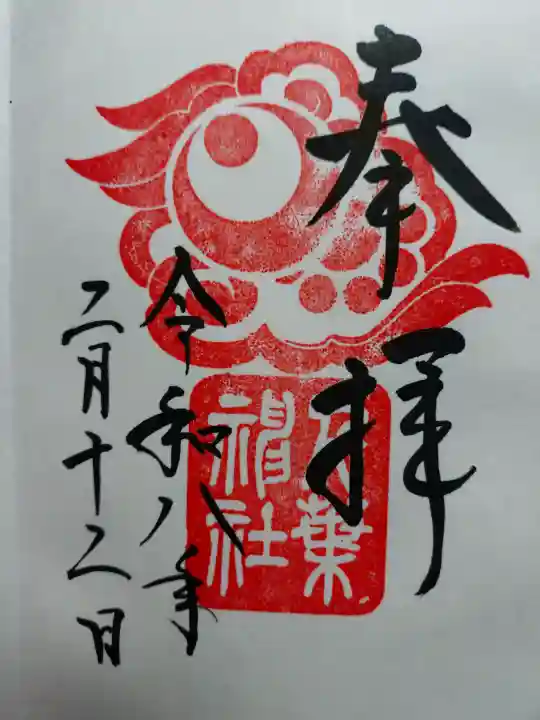 奉拝
令和八年
二月十二日
千葉
神社